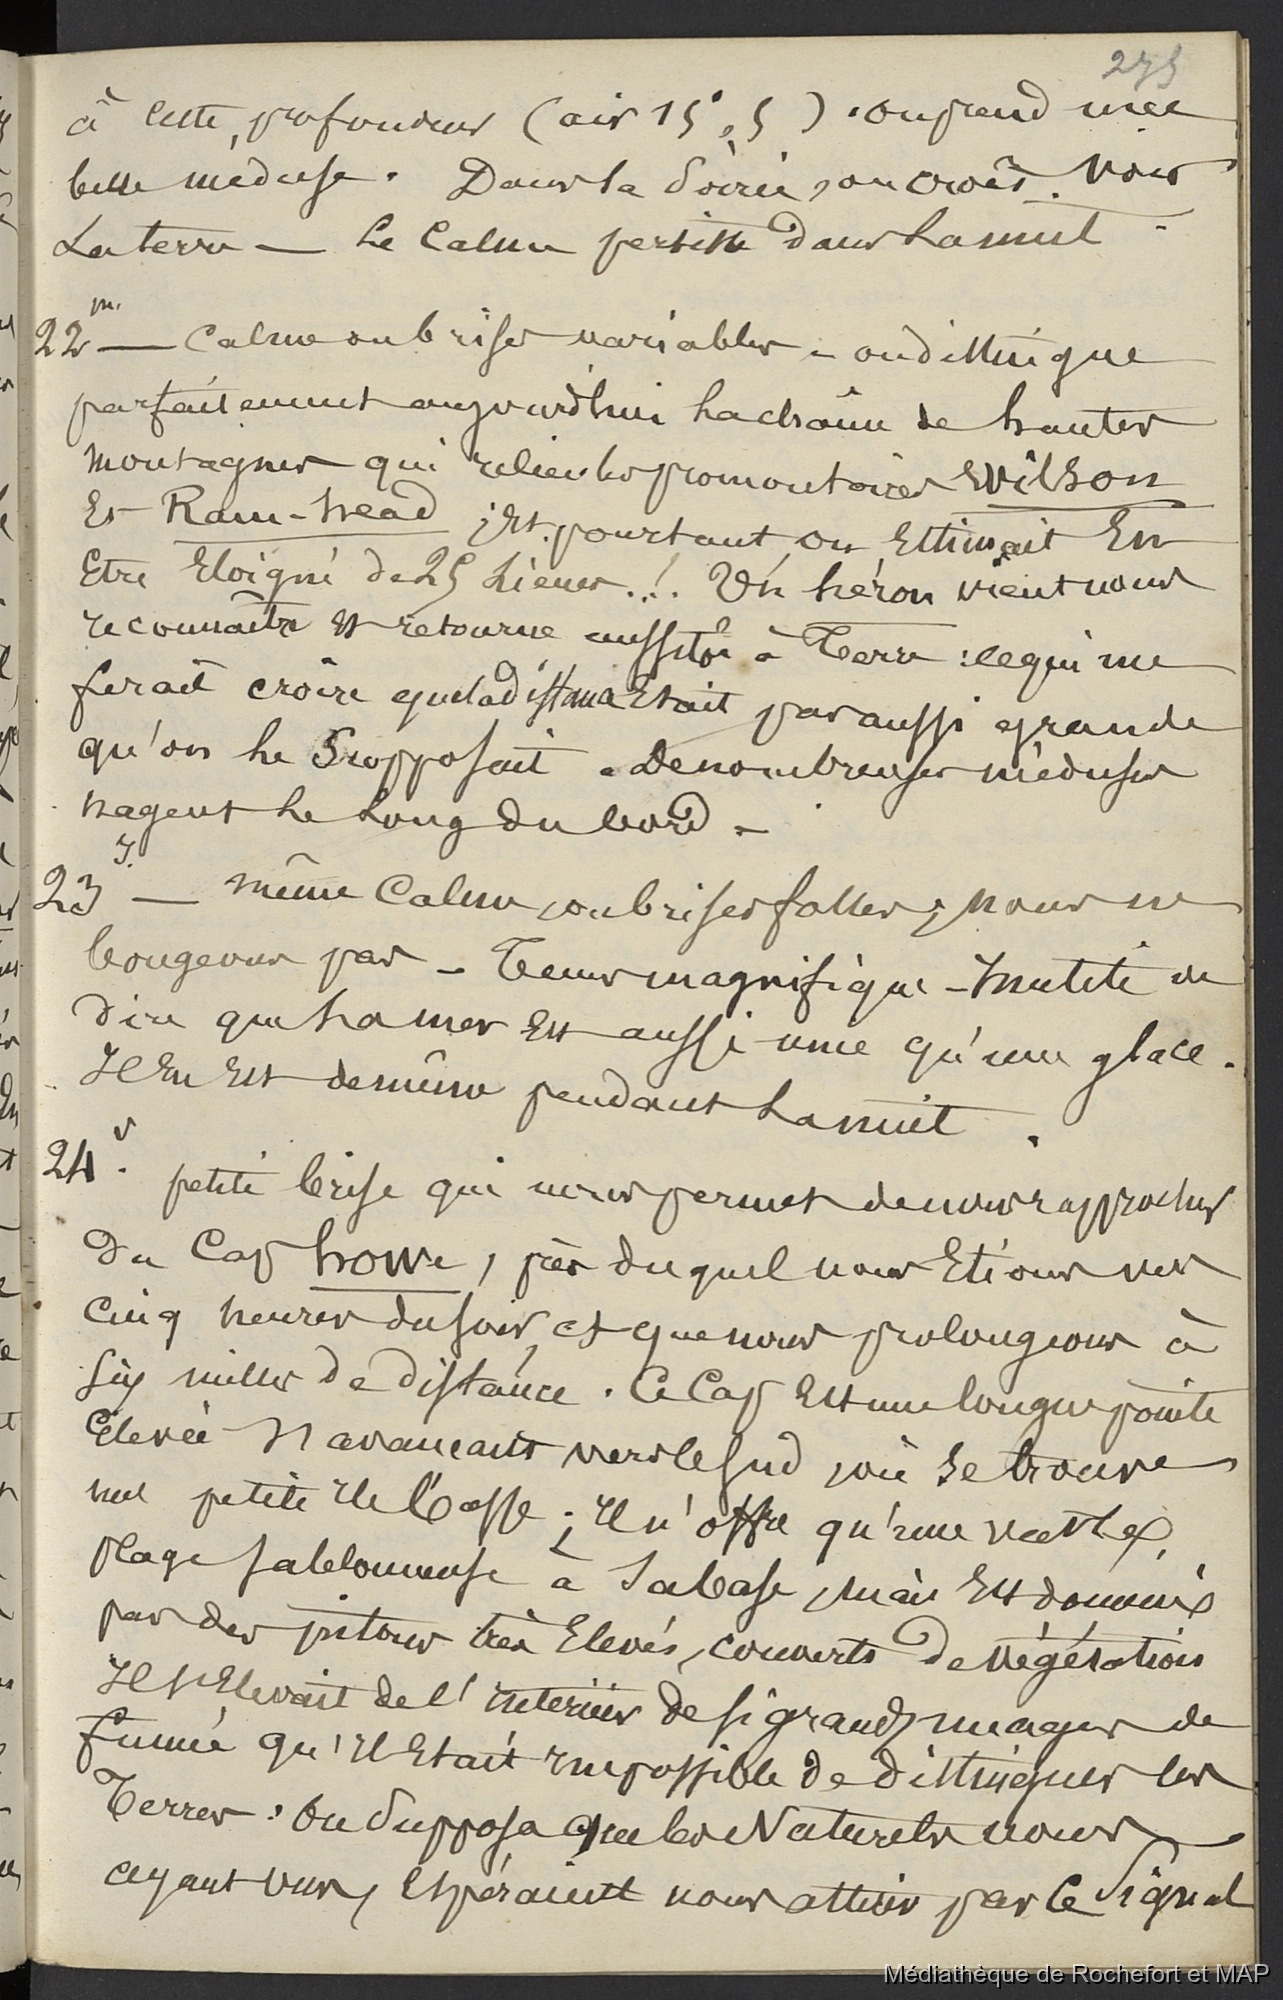 275
à cette profondeur (air 15°,5). on prend une
belle méduse. Dans la soirée, on croit voir
La terre — Le Calme persiste dans La nuit.
22 m. — Calme ou brises variables — on distingue
parfaitement aujourd'hui La chaîne de hautes
montagnes qui relie les promontoires Wilson
Et Ram-head ; Et pourtant on Estimait En
Etre Eloigné de 25 Lieues..! Un héron vient nous
reconnaître Et retourne aussitôt à Terre : ce qui me
ferait croire que la distance Etait pas aussi grande
qu'on Le Supposait. De nombreuses méduses
nagent Le Long du bord —
23 J. — même Calme, ou brises folles ; nous ne
bougeons pas — Tems magnifique — Inutile de
dire que La mer Est aussi unie qu'une glace.
Il En Est de même pendant La nuit.
24 v. petite brise qui nous permet de nous rapprocher
Du Cap howe, près duquel nous Etions vers
Cinq heures du soir, et que nous prolongeons à
Six milles De distance. Ce Cap Est une longue pointe
Elevée s'avançant vers le Sud, où se trouve
une petite Ile basse ; Il n'offre qu'une vaste
plage sablonneuse à sa base, mais Est dominé
par des pitons très Elevés, couverts De végétation
Il s'Elevait de l'interieur de si grands nuages de
fumée qu'Il Etait Impossible de distinguer les
Terres. On Supposa que les Naturels nous
ayant vus, Espéraient nous attirer par ce Signal
Médiathèque de Rochefort et MAP